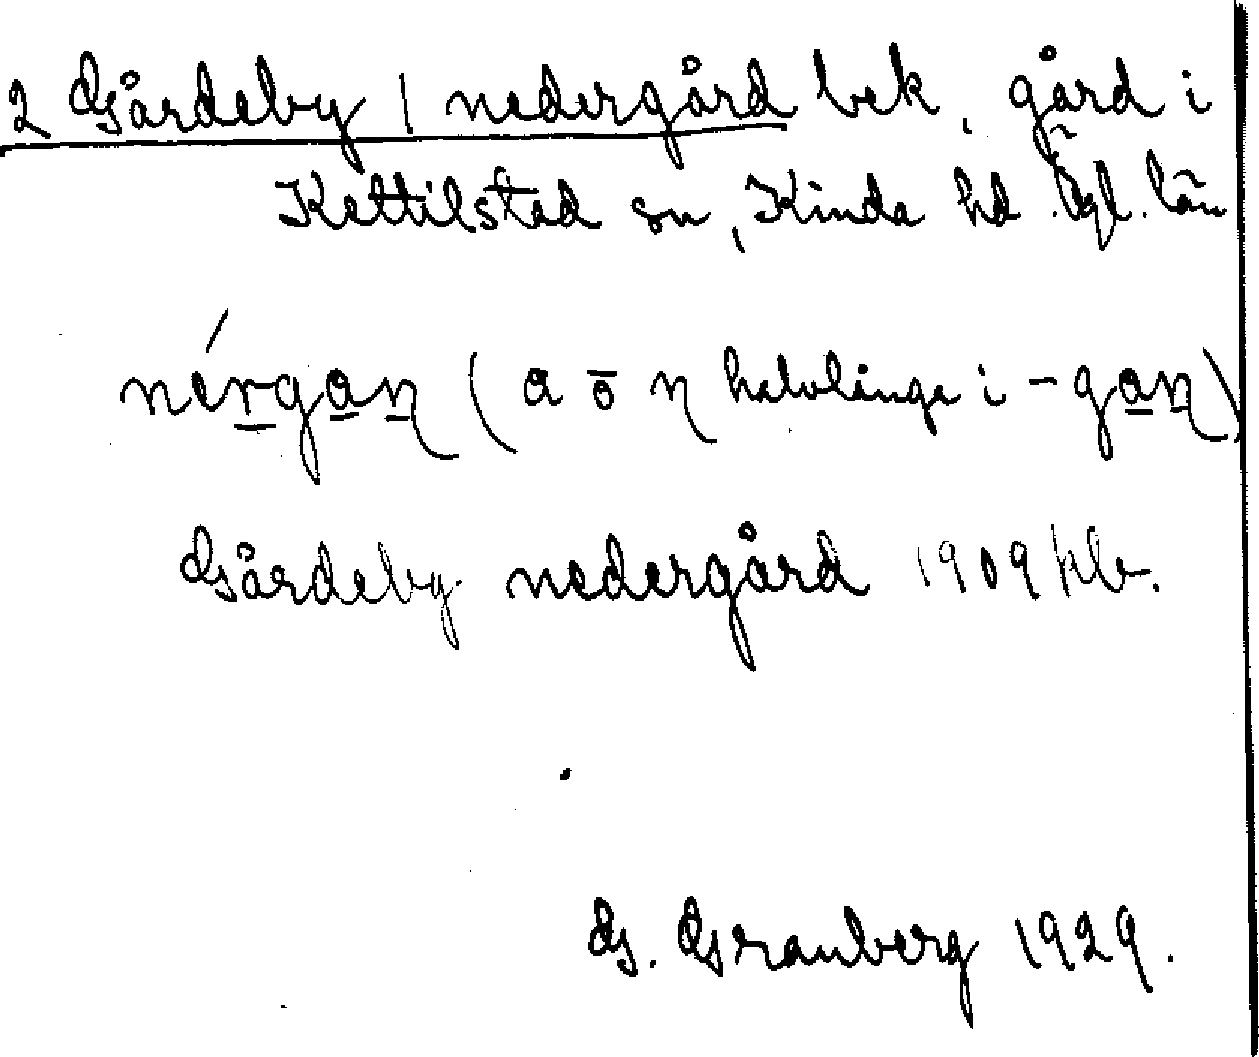 2 Gårdeby / nedergård bek, gård i
Kettilstad sn, Kinda hd. Ögl. län
nérgaɳ (a o ɳ halvlånga i -gaɳ)
Gårdeby nedergård 1909 hlr.
G. Granberg 1929.